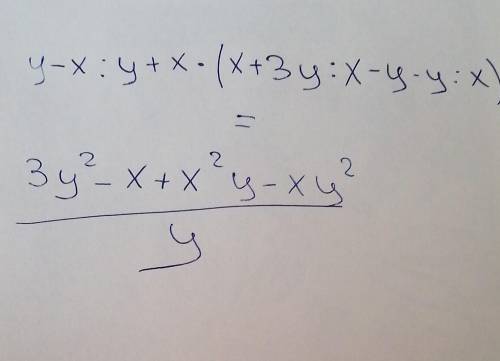 y-x:y+x·(x+3y:x-y-y:x)
=
3y²-x+x²y-xy²
y